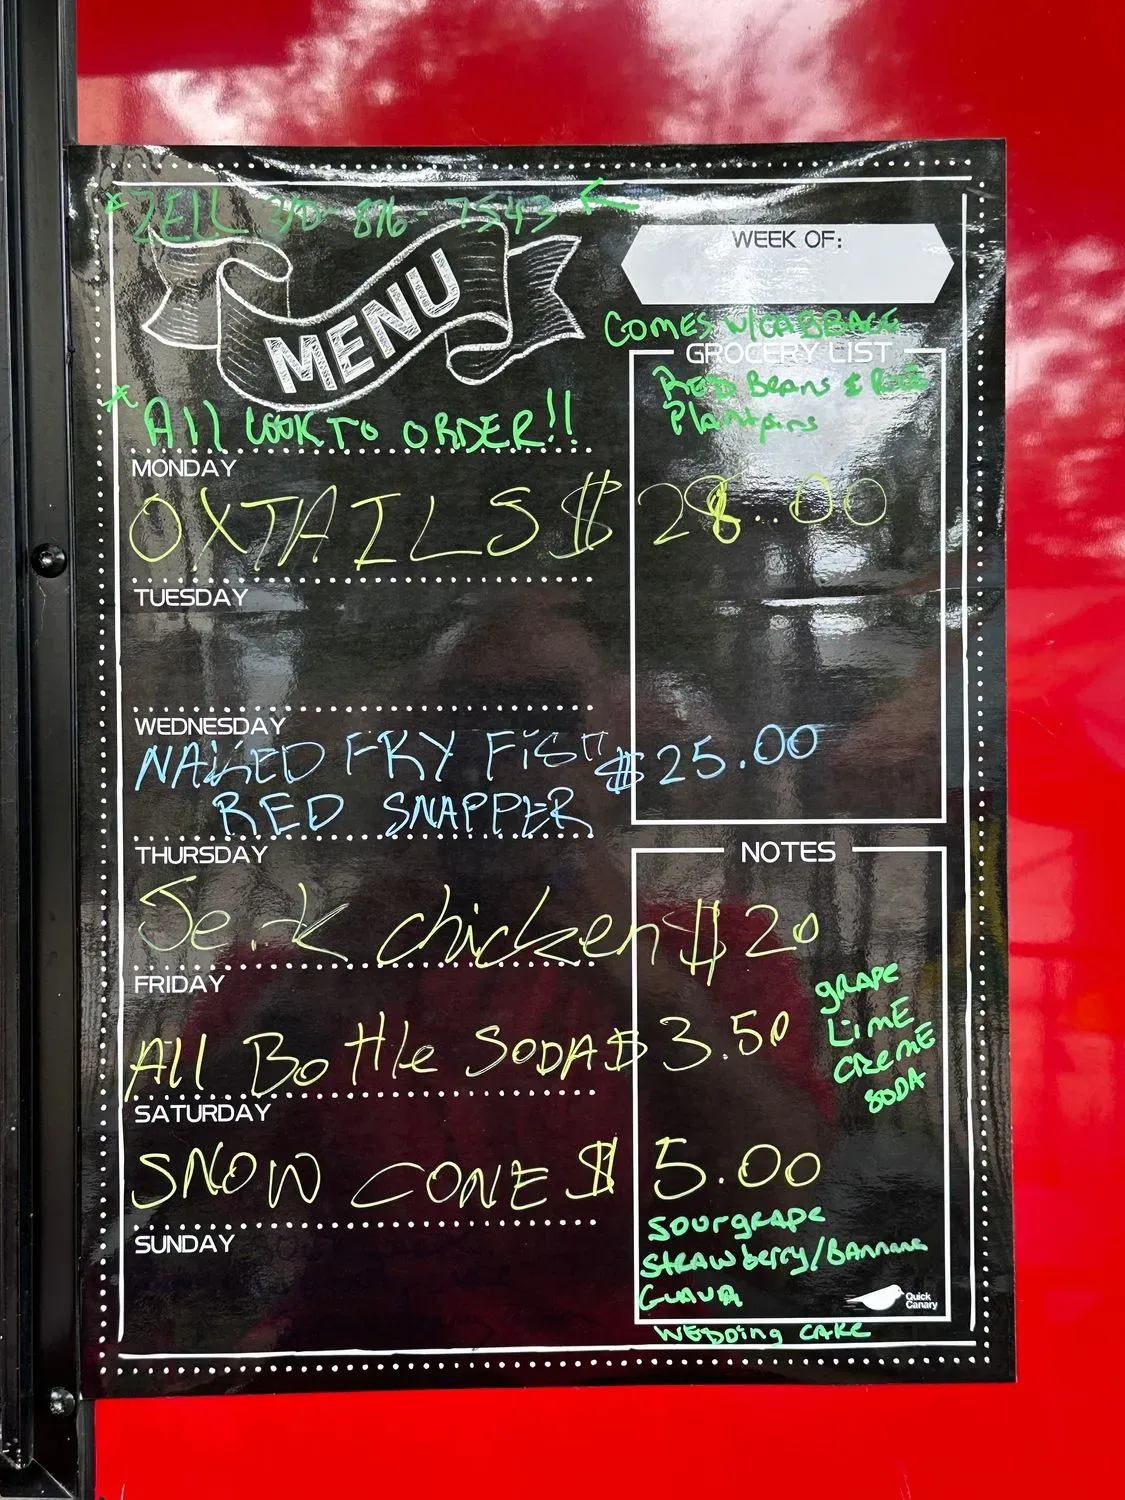 ZELL 310-876-7543
MENU
WEEK OF:
COMES W/CABBAGE
GROCERY LIST
RED BEANS & RICE
Plantains
All COOK TO ORDER!!
MONDAY
OXTAILS $ 28.00
TUESDAY
WEDNESDAY
NAKED FRY FISH $25.00
RED SNAPPER
THURSDAY
NOTES
Jerk chicken $20
FRIDAY
All Bottle SODA $3.50
GRAPE
LIME
CREME
SODA
SATURDAY
SNOW CONE $ 5.00
SUNDAY
Sourgrape
STRAWberry/BANNANA
GUAVA
Quick
Canary
WEDDing CAKE